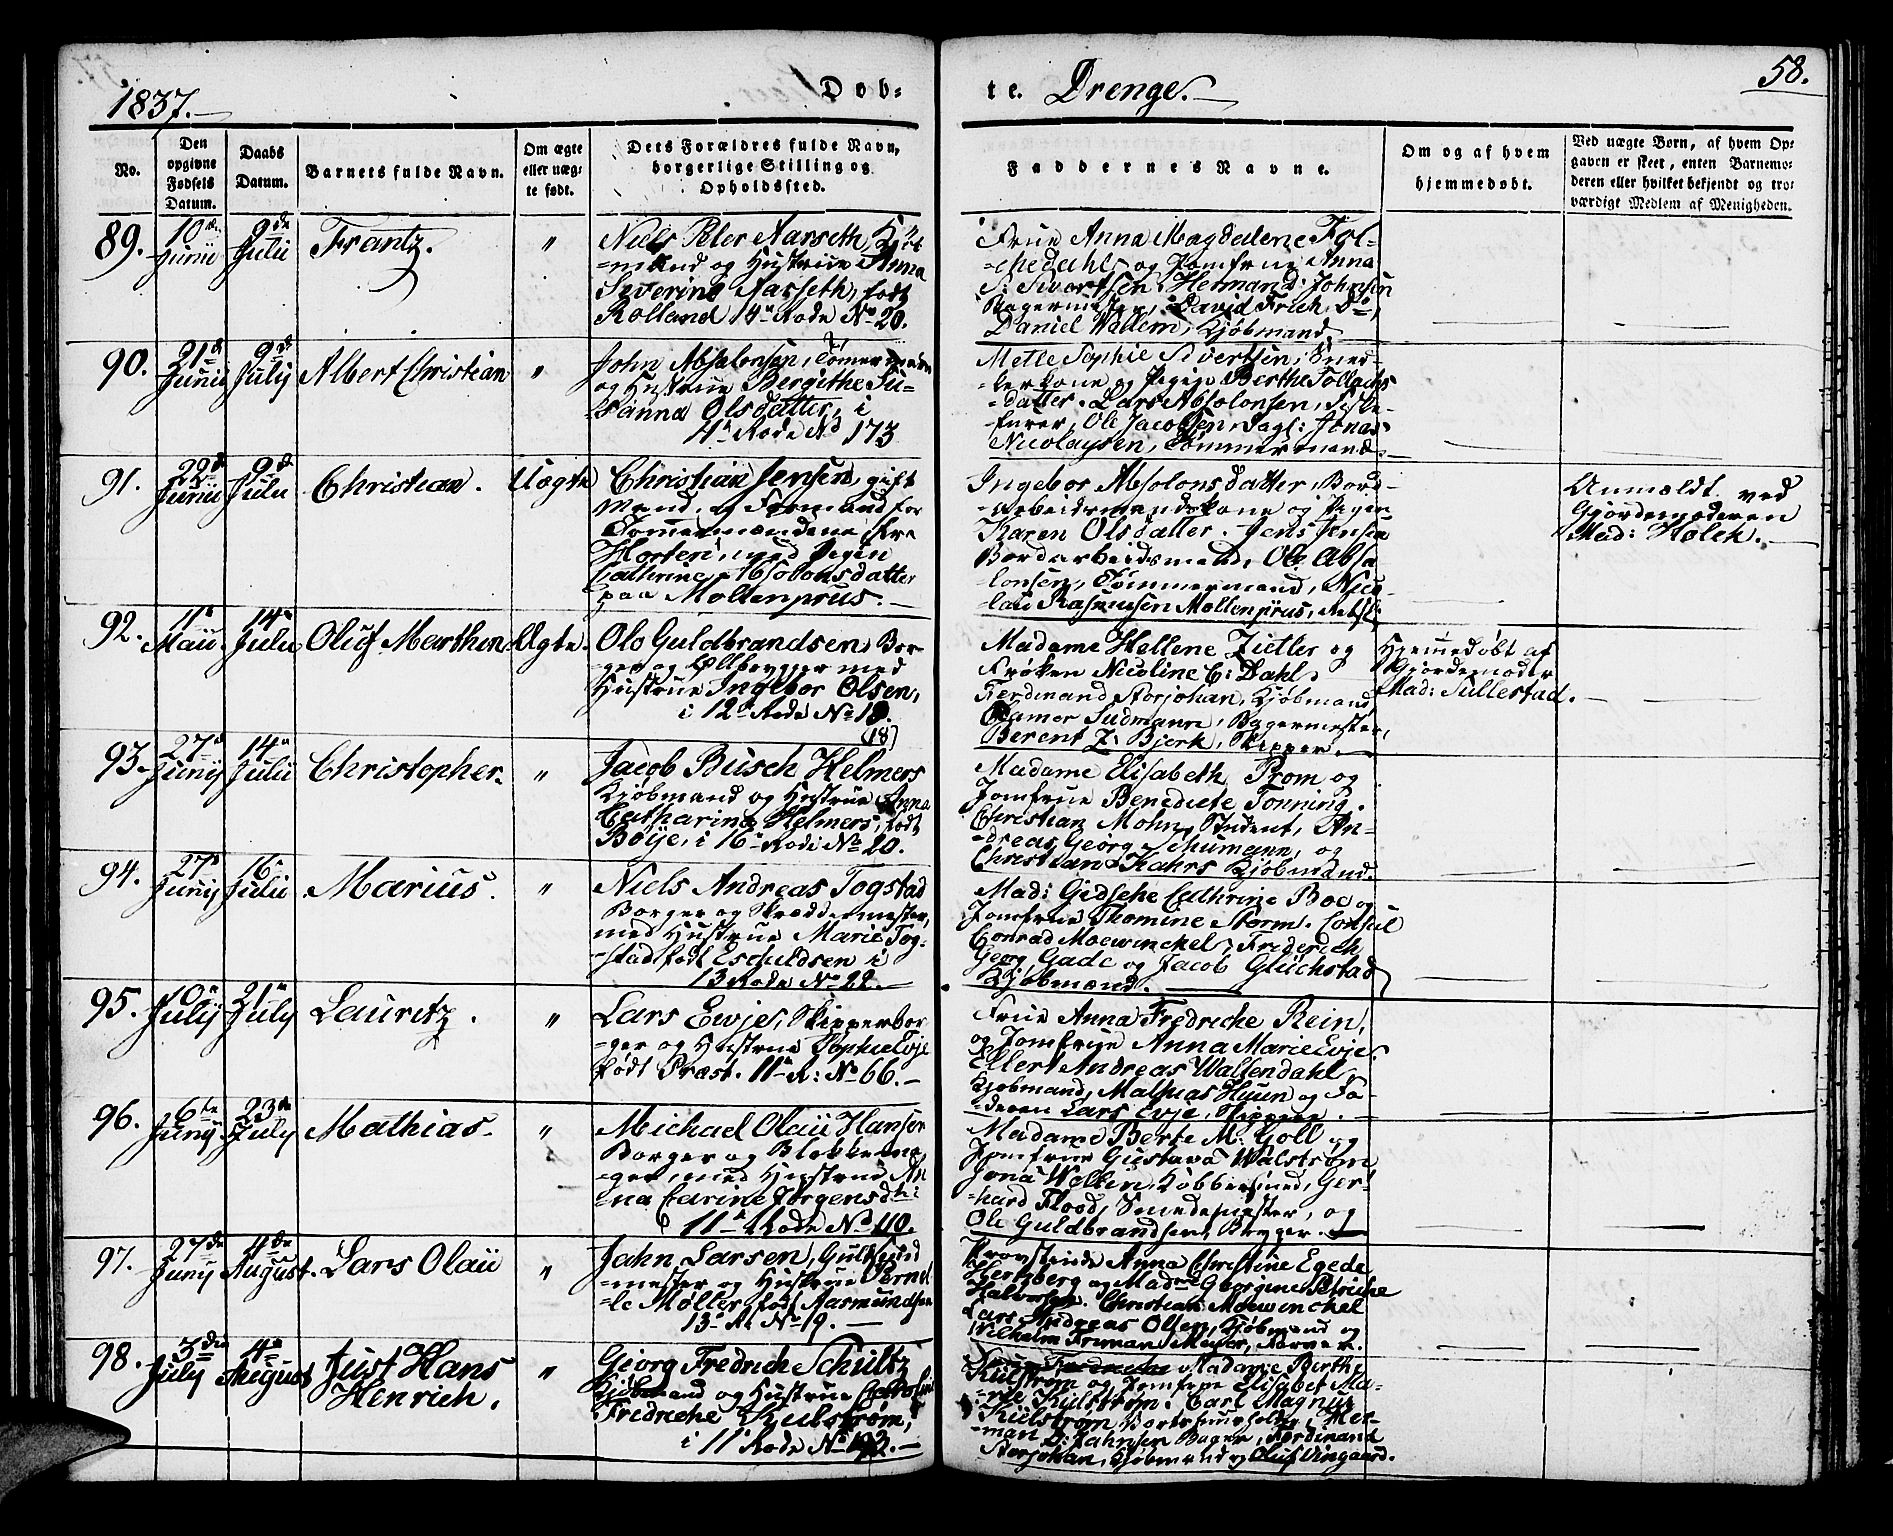 1837.
Døb-
te. Drenge.
58.
No.
Den opgivne Fødsels Datum.
Daabs Datum.
Barnets fulde Navn.
Om ægte eller uægte født.
Dets Forældres fulde Navn, borgerlige Stilling og Opholdssted.
Faddernes Navne.
Om og af hvem hjemmedøbt.
Ved uægte Børn, af hvem Opgaven er skeet, enten Barnemoderen eller hvilket bekjendt og troværdigt Medlem af Menigheden.
89.
10de Junii
9de Julii
Frantz.
"
Niels Peter Aasseth, Kjøb-
-mand og Hustrue Anna
Severine Aasseth, født
Rolland 14de Rode No 20.
Frue Anna Magdelene Fol-
-chedahl, og Jomfrue Anna
S: Sivertsen, Herman D: Johnsen
Bagermester, David Frich Do,
Daniel Wallem, Kjøbmand
90.
21de Junii
9de July
Albert Christian
"
John Absolonsen, Tømermand
og Hustrue Bergithe Su-
-sanna Olsdatter, i
4de Rode No 173
Mette Sophie Sivertsen, Sned-
-kerkone og Pigen Berthe Tollachs
-datter. Lars Absolonsen, Fiske-
fører, Ole Jacobsen, Dagl: Jonas
Nicolaysen, Tømmermænd.
91.
22de Junii
9de Julii
Christian.
Uægte
Christian Jensen, gift
Mand, og Formand for
Tømmermændene fra
Horten, med Pigen
Cathrine Absolonsdatter
paa Møllenpriis.
Ingebor Absolonsdatter, Bord-
-arbeidsmandskone og Pigen
Karen Olsdatter. Jens Jensen
Bordarbeidsmand, Ole Abso
lonsen, Tømmermand, Nico
lai Rasmusen Møllenpriis,
Anmældt ved
Gjordemoderen
Mad: Holck.
92.
11te Maii
14de Julii
Oluf Marthin
Ægte.
Ole Guldbrandsen, Bor-
-ger og Ølbrygger med
Hustrue Ingebor Olsen,
i 12te Rode No 19.
(18)
Madame Hellene Zietler og
Frøken Nicoline C: Dahl.
Ferdinand Storjohan, Kjøbmand
Clamer Sudmann, Bagermester,
Berent Z: Bjerk, Skipper.
Hjemmedøbt af
Gjordemoder
Mad: Sullestad.
93.
27de Junij
14de Julii
Christopher.
"
Jacob Busch Helmers
Kjøbmand og Hustrue Anna
Catharina Helmers, født
Böÿe, i 16de Rode No 20.
Madame Elisabeth Prom og
Jomfrue Benedicte Tonning.
Christian Mohn, Student, An-
-dreas Georg Schumann, og
Christian Kahrs Kjøbmænd.
94.
27de Junij
16de Julii
Marius.
"
Niels Andreas Togstad
Borger og Skræddermester,
med Hustrue Marie Tog-
-stad født Esculdsen i
13 Rode No 22.
Mad: Gidsche Cathrine Boe og
Jomfrue Thomine Storm. Consul
Conrad Moewinckel, Friderich
Georg Gade og Jacob Glückstad
Kjøbmænd.
95.
10de Julij
21de July
Lauritz.
"
Lars Evje, Skipperbor-
-ger og Hustrue Sophie Evje
født Præst. 11te R: No 66.
Frue Anna Fredriche Rein,
og Jomfrue Anna Marie Evje.
Ellert Andreas Wallendahl
Kjøbmand, Mathias Huun og Fa-
-deren Lars Evje, Skipper.
96.
6te Junij
23de July
Mathias.
"
Michael Olaii Hansen
Borger og Blokkema-
-ger, med Hustrue An
-na Carine Jørgensdtr:
11te Rode No 110.
Madame Berte M: Goll og
Jomfrue Gustava Walstrøm
Jona Wellin, Kobbersmed, Ger-
-hard Flood, Smedemester, og
Ole Guldbrandsen, Brygger.
97.
27de Junij
4de August.
Lars Olaii
"
Jahn Larsen, Guldsmed
-mester og Hustrue Pernel
-le Møller, født Aasmundsen
13de R: No 19.
Provstinde Anna Christine Egede
Hertzberg og Madme Georgine Petriche
Halvorsen. Christian Moewinckel
Lars Andreas Olsen, Kjøbmænd og
Wilhelm Friman Meyer, Farver.
98.
3die July
4de August
Just Hans
Henrich.
"
Georg Fredriche Schultz
Kjøbmand og Hustrue Caroline
Fredriche Kjulstrøm,
i 11te Rode No 192.
Madame Birthe
Kulstrøm og Jomfrue Elisabet Ma-
-rie Kulstrøm. Carl Magnus
Kulstrøm Værtshuusholder, Her-
-man D: Jahnsen Bager, Ferdinand
Storjohan, Kjøbmænd og Oluf Vingaard.